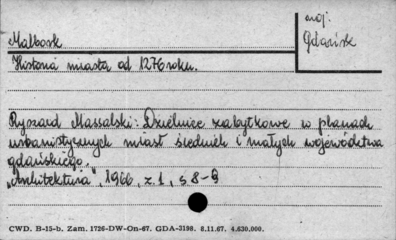 Malbork
woj. Gdańsk
Historia miasta od 1276 roku.
Ryszard Massalski: Dzielnice zabytkowe w planach
urbanistycznych miast średnich i małych województwa
gdańskiego.
„Architektura", 1966, z.1, s 8-9
CWD. B-15-b. Zam. 1726-DW-On-67. GDA-3198. 8.11.67. 4.630.000.